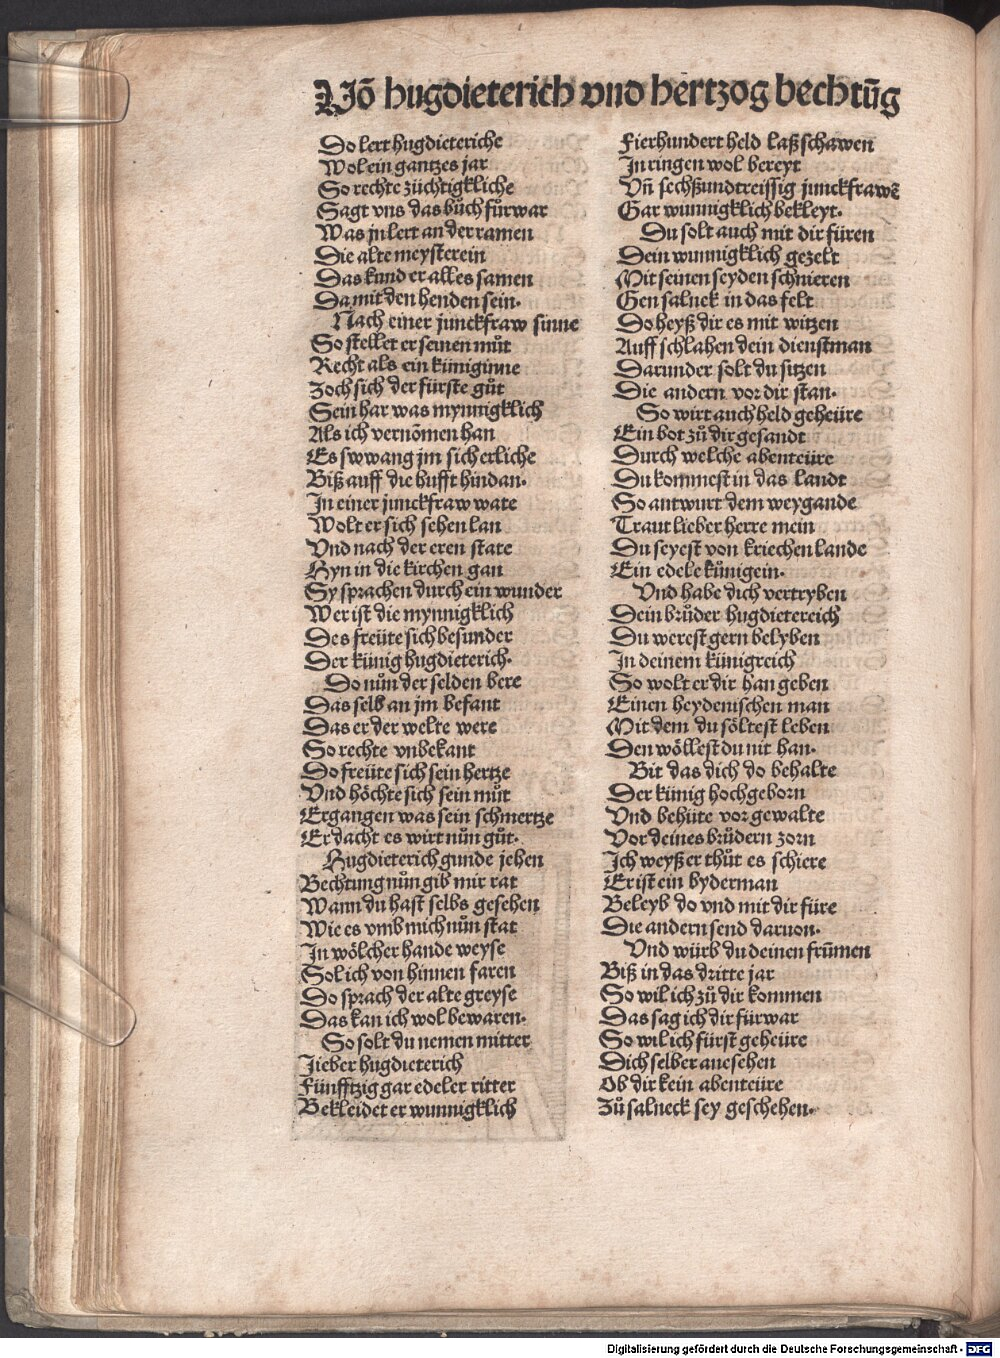 Võ hugdieterich vnd hertzog bechtũg
Do lert hugdieteriche
Wol ein gantzes jar
So rechte züchtigkliche
Sagt vns das bůch fürwar
Was in lert an der ramen
Die alte meysterein
Das kund er alles samen
Da mit den henden sein.
Nach einer junckfraw sinne
So stellet er seinen můt
Recht als ein künniginne
Zoch sich der fürste gůt
Sein har was mynnigklich
Als ich vernõmen han
Es swwang jm sicherliche
Biß auff die hufft hindan.
In einer junckfraw wate
Wolt er sich sehen lan
Vnd nach der eren state
Hyn in die kirchen gan
Sy sprachen durch ein wunder
Wer ist die mynnigklich
Des freüte sich besunder
Der künig hugdieterich.
Do nůn der selden bere
Das selb an jm befant
Das er der welte were
So rechte vnbekant
Do freüte sich sein hertze
Vnd höchte sich sein můt
Ergangen was sein schmertze
Er dacht es wirt nůn gůt.
Hugdieterich gunde jehen
Bechtung nůn gib mir rat
Wann du hast selbs gesehen
Wie es vmb mich nůn stat
In wölcher hande weyse
Sol ich von hinnen faren
Do sprach der alte greyse
Das kan ich wol bewaren.
So solt du nemen mitter
Lieber hugdieterich
Fünfftzig gar edeler ritter
Bekleidet er wunnigklich
Fierhundert held laß schawen
In ringen wol bereyt
Vñ sechßundtreissig junckfrawẽ
Gar wunnigklich bekleyt.
Du solt auch mit dir füren
Dein wunnigklich gezelt
Mit seinen seyden schnieren
Gen salnek in das felt
Do heyß dir es mit witzen
Auff schlahen dein dienstman
Darunder solt du sitzen
Die andern vor dir stan.
So wirt auch held geheüre
Ein bot zů dir gesandt
Durch welche abenteüre
Du kommest in das landt
So antwurt dem weygande
Traut lieber herre mein
Du seyest von kriechen lande
Ein edele künigein.
Vnd habe dich vertryben
Dein brůder hugdietereich
Du werest gern belyben
In deinem künigreich
So wolt er dir han geben
Einen heydenischen man
Mit dem du söltest leben
Den wöllest du nit han.
Bit das dich do behalte
Der künig hochgeborn
Vnd behüte vor gewalte
Vor deines brůdern zorn
Ich weyß er thůt es schiere
Er ist ein byderman
Beleyb do vnd mit dir füre
Die andern send daruon.
Vnd würb du deinen frũmen
Biß in das dritte jar
So wil ich zů dir kommen
Das sag ich dir fürwar
So wil ich fürst geheüre
Dich selber anesehen
Ob dir kein abenteüre
Zů salneck sey geschehen.
Digitalisierung gefördert durch die Deutsche Forschungsgemeinschaft - DFG